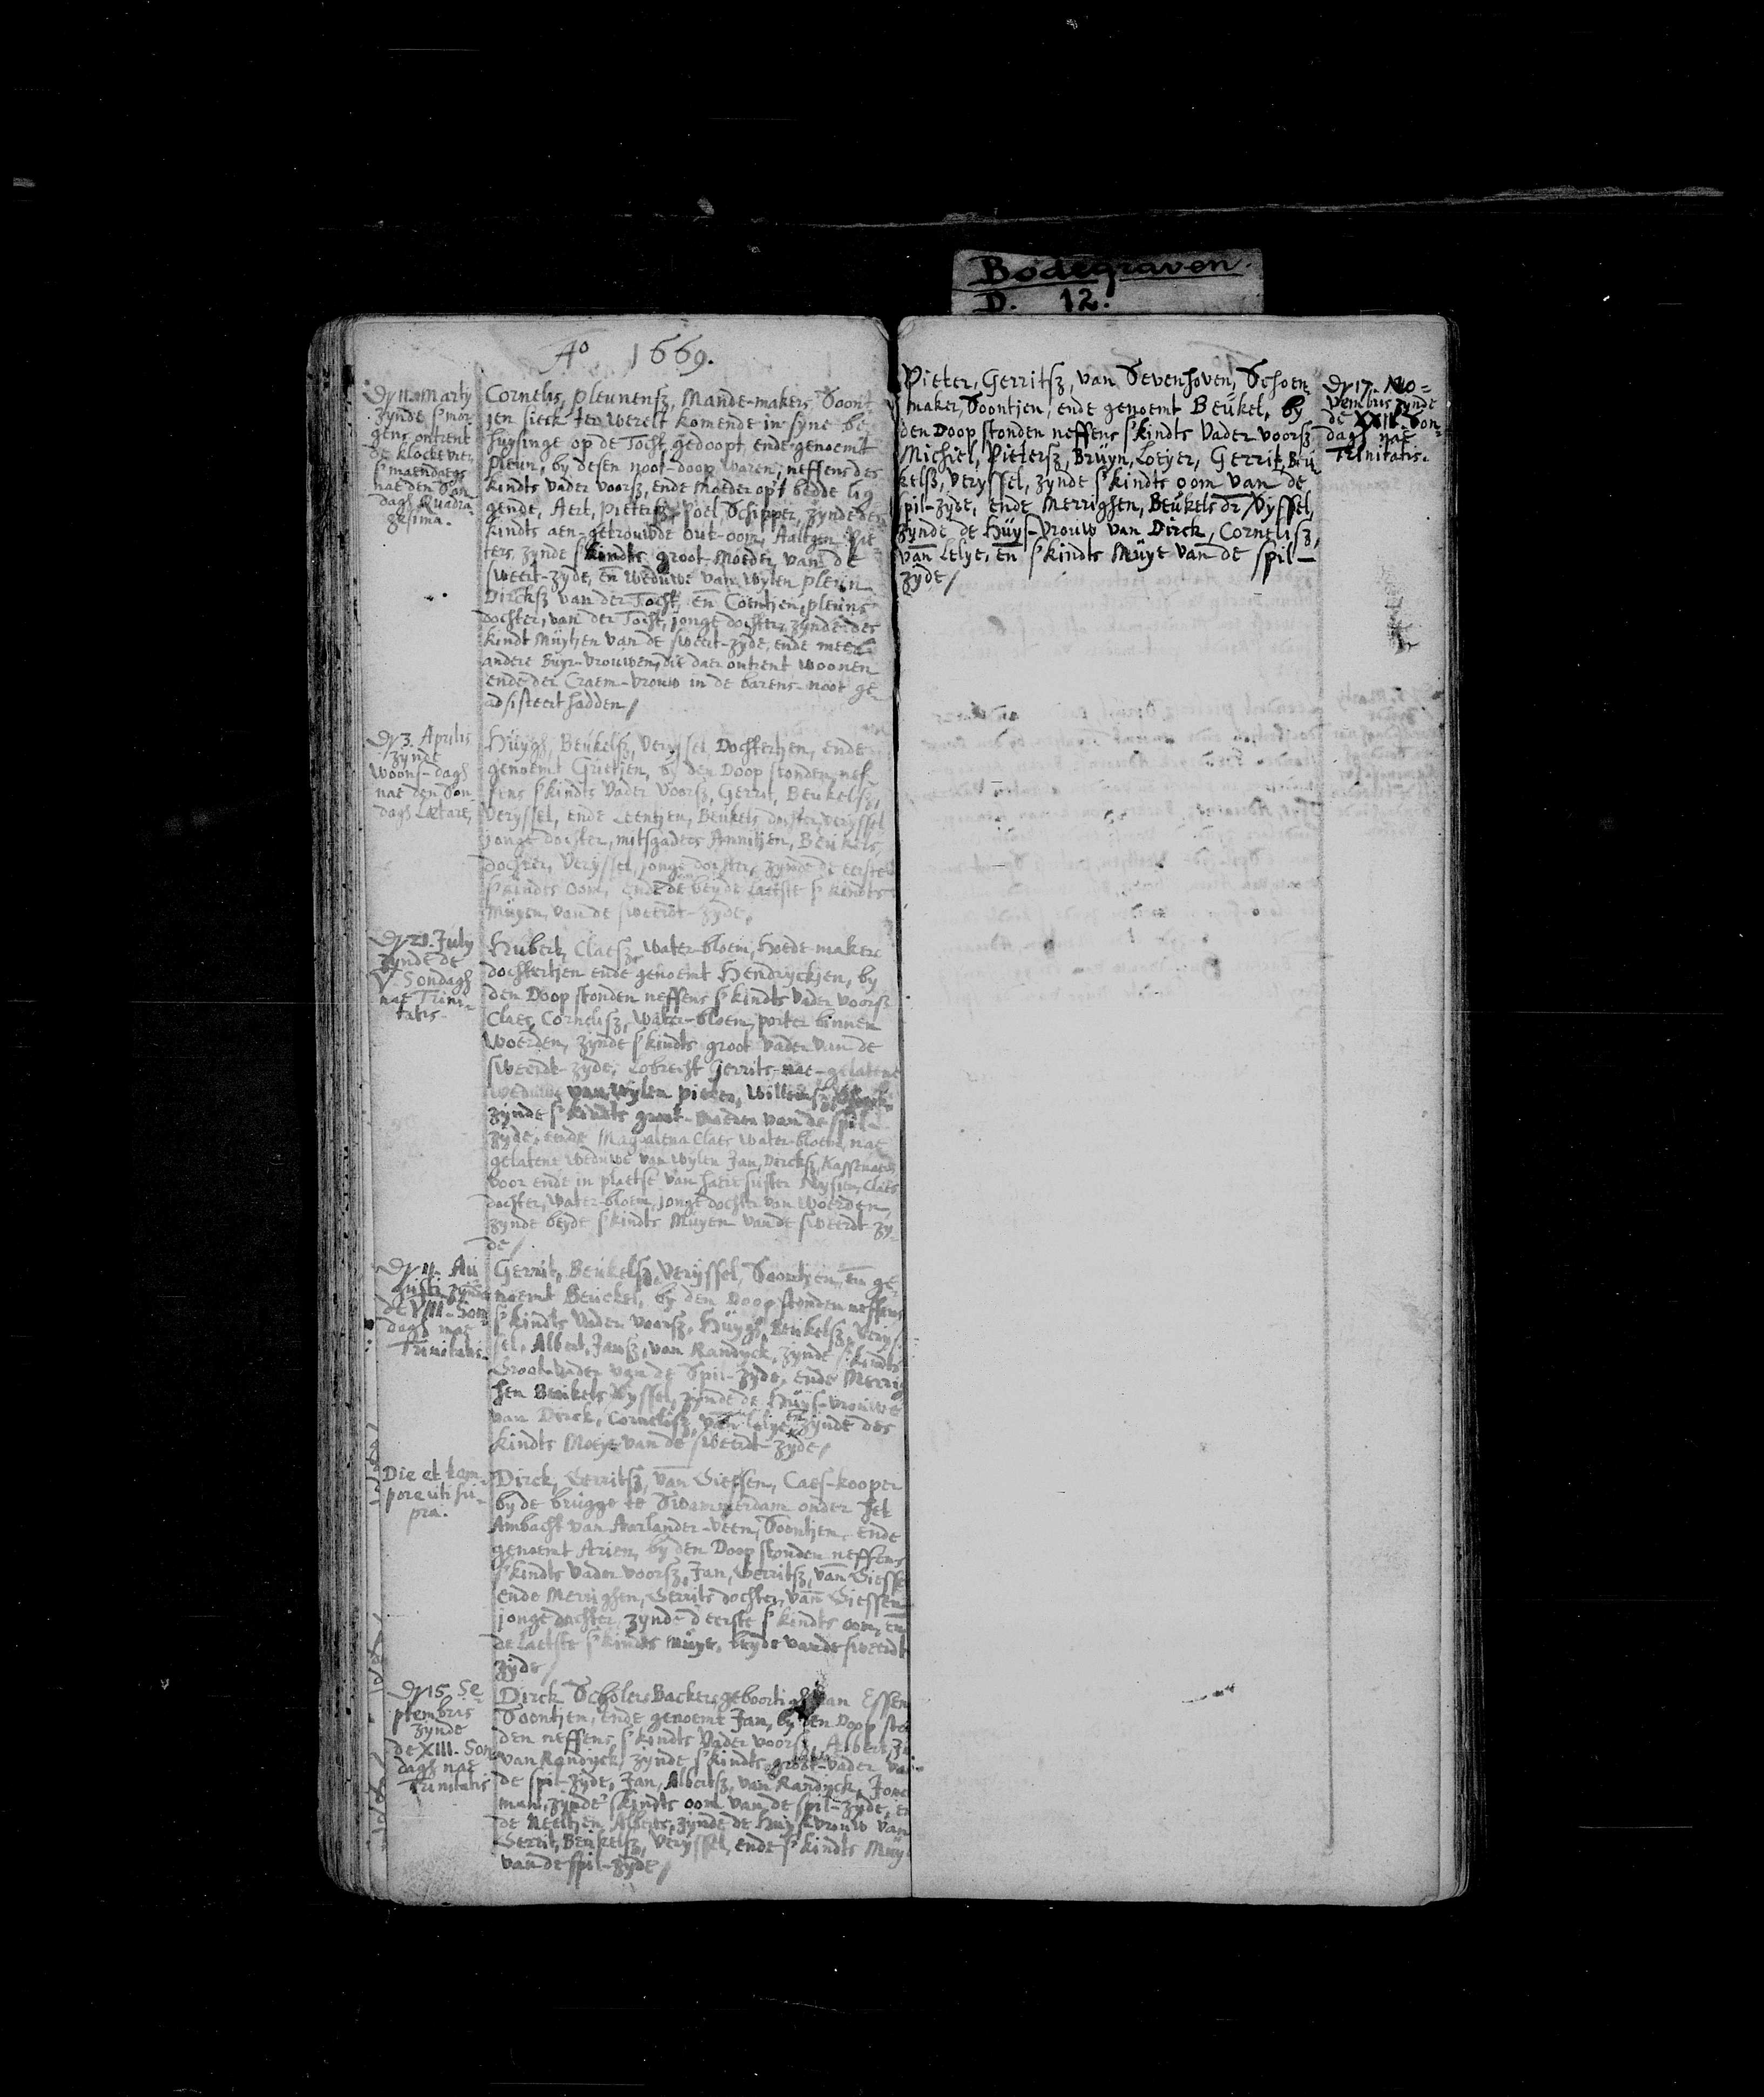 Bodegraven
D. 12.
Ao 1669.
Dy 11. Marty
zynde smor-
gens ontrent
de klocke vier,
smaendaegs
nae den Son-
dagh Quadra-
gesima.
Cornelis, Pleunensz, Mande-makers Soont-
jen sieck ter werelt komende in syne be-
huysinge op de Tocht, gedoopt, ende genoemt
Pleun, by desen noot-doop waren, neffens des
kindts vader voorsz, ende Moeder opt bedde lig-
gende, Aert, Pietersz, Poel, Schipper, zynde des
kindts aen-getrouwde out-oom, Aaltgen Pie-
ters, zynde skindts groot-Moeder van de
sweert-zyde, en weduwe van wylen Pleun
Dircksz van der Tocht, en Coentjen, pleuns
dochter, van der Tocht, jonge dochter, zynde des
kindt Muytjen van de sweert-zyde, ende meer
andere Buyr-vrouwen, die daer ontrent woonen
ende der Craem-vrouw in de barens-noot ge-
adsisteert hadden/
Dy 3. Aprilis
zynde
woons-dagh
nae den Son-
dagh Lætare,
Huygh, Beukelsz, Veryssel Dochterjen, ende
genoemt Grietjen, by den Doop stonden nef-
fens skindts vader voorsz, Gerrit, Beukelsz,
Veryssel, ende Leentjen, Beukels dochter, veryssel
jonge dochter, mitsgaders Annitjen, Beukels
dochter, Veryssel, jonge dochter, zynde de eerste
skindts oom, ende de beyde laetste skindts
Muyen van de sweerdt-zyde,
Dy 21. July
zynde de
V. Sondagh
nae Trini-
tatis.
Hubert, Claesz, water-bloem, hoede-makers
dochtertjen ende genoemt Hendryckjen, by
den Doop stonden neffens skindts vader voorsz
Claes, Cornelisz, Water-bloem, porter binnen
Woerden, zynde skindts groot vader van de
sweerdt-zyde, Lobrecht Gerrits-nae-gelatene
weduwe van wylen pieter, Willemsz,
zynde skindts groot-moeder van de spil-
zyde, ende Magdalena Claes Water-bloem, nae
gelatene weduwe van wylen Jan, Dircksz,
voor ende in plaetse van haere suster Claes
dochter, Water-bloem, jonge dochter van Woerden,
zynde beyde skindts Muyen van de sweerdt-zy-
de/
Dy 11. Au-
gusti zynde
de VIII. Son-
dagh nae
Trinitatis.
Gerrit, Beukelsz, Veryssel, Soontjen, en ge-
noemt Beuckel, by den Doop stonden neffens
skindts vader voorsz, Huygh, Beukelsz, Verys-
sel, Albert, Jansz, van Randyck, zynde skindts
Groot-vader van de Spil-zyde, ende Merrig-
hen Beukels Vyssel, zynde de Huys-vrouwe
van Dirck, Cornelisz, van Lelye, en zynde des
kindts Moeye van de sweerdt-zyde/
Die et tem-
pore uti su-
pra.
Dirck, Gerritsz, van Giessen, Caes-kooper
by de brugge te Swammerdam onder het
Ambacht van Aarlander-veen, Soontjen, ende
genoemt Arien, by den Doop stonden neffens
skindts vader voorsz, Jan, Gerritsz, van Giesse
ende Merrighen, Gerrits dochter, van Giessen
jonge dochter, zynde d eerste skindts oom, en
de laetste skindts Muye, beyde van de sweerdt
zyde/
Dy 15. Se-
ptembris
zynde
de XIII. Son-
dagh nae
Trinitatis
Dirck Scholers Backers geboortigh van Essen
Soontjen, ende genoemt Jan, by den Doop sto
den neffens skindts vader voorsz, Albert,
van Randyck, zynde skindts groot-vader va
de spil-zyde, Jan, Albertsz, van Randyck, Jon
man, zynde skindts oom van de spil-zyde, en
de Neeltjen, Alberts, zynde de Huysvrouw van
Gerrit, Beukelsz, Veryssel, ende skindts Muy
van de spil-zyde/
Pieter, Gerritsz, van Sevenhoven, Schoen-
maker, Soontjen, ende genoemt Beukel, by
den Doop stonden neffens skindts vader voorsz
Michiel, Pietersz, Bruyn, Loeyer, Gerrit, Beu-
kelsz, Veryssel, zynde skindts oom van de
spil-zyde, ende Merrighen, Beukels dr, Vyssel,
zynde de Huys-vrouw van Dirck, Cornelisz,
van Lelye, en skindts Muye van de spil-
zyde/
Dy 17. No-
vembris zynde
de XXII. Son-
dagh nae
Trinitatis.